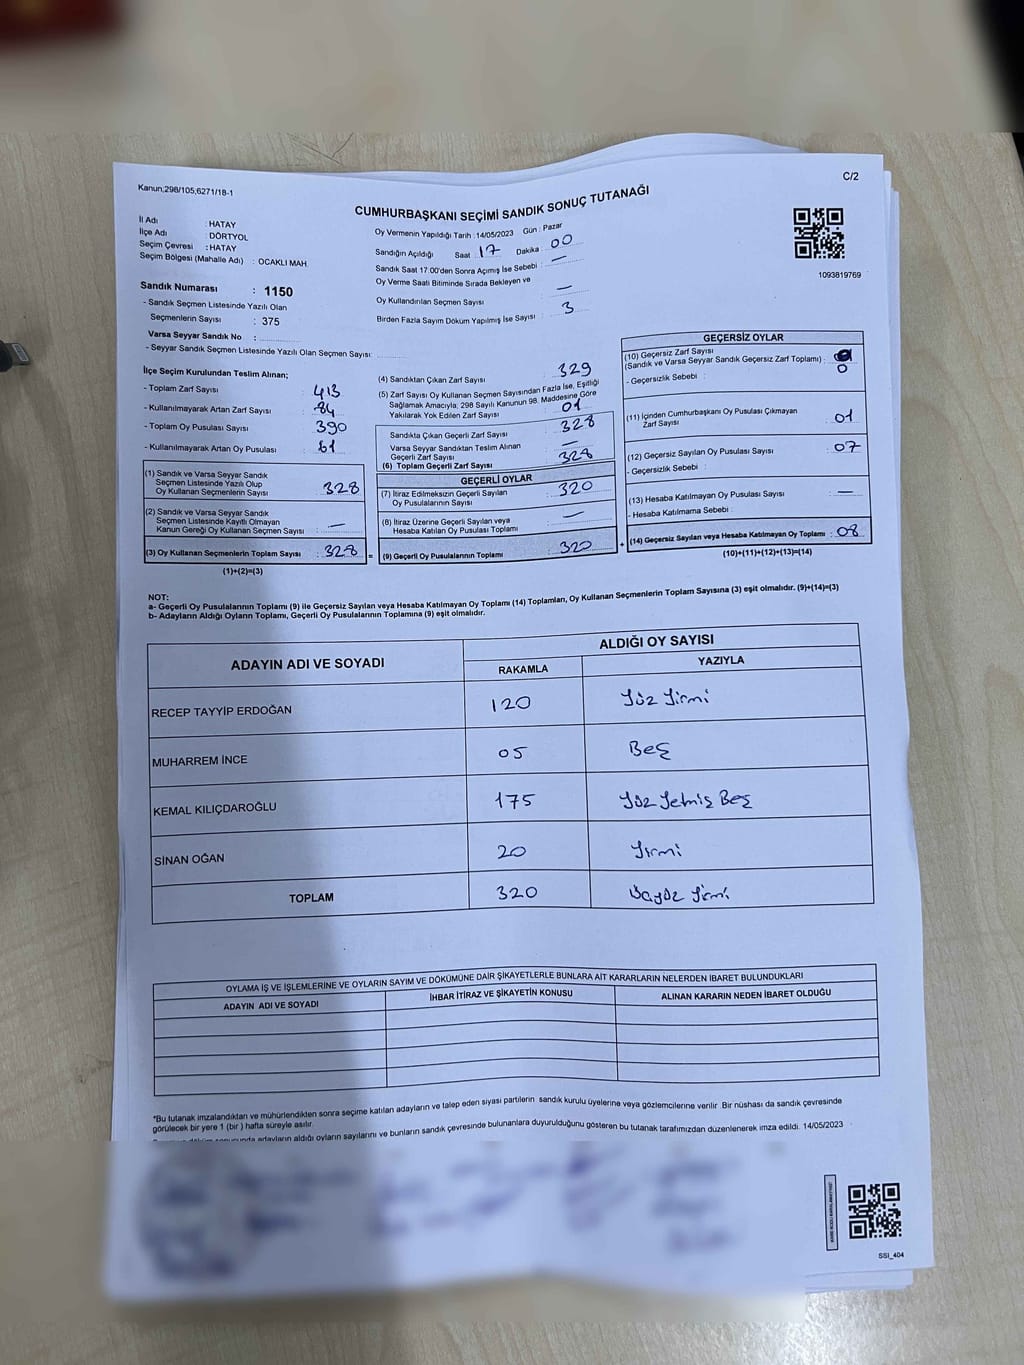 Kanun;298/105,6271/18-1
C/2
CUMHURBAŞKANI SEÇİMİ SANDIK SONUÇ TUTANAĞI
1093819769
İl Adı : HATAY
İlçe Adı : DÖRTYOL
Seçim Çevresi : HATAY
Seçim Bölgesi (Mahalle Adı) : OCAKLI MAH.
Sandık Numarası : 1150
- Sandık Seçmen Listesinde Yazılı Olan
Seçmenlerin Sayısı : 375
Varsa Seyyar Sandık No :
- Seyyar Sandık Seçmen Listesinde Yazılı Olan Seçmen Sayısı:
Oy Vermenin Yapıldığı Tarih : 14/05/2023 Gün : Pazar
Sandığın Açıldığı Saat 17 Dakika : 00
Sandık Saat 17:00'den Sonra Açımış İse Sebebi : —
Oy Verme Saati Bitiminde Sırada Bekleyen ve
Oy Kullandırılan Seçmen Sayısı —
Birden Fazla Sayım Döküm Yapılmış İse Sayısı : 3
İlçe Seçim Kurulundan Teslim Alınan;
- Toplam Zarf Sayısı : 413
- Kullanılmayarak Artan Zarf Sayısı : 84
- Toplam Oy Pusulası Sayısı : 390
- Kullanılmayarak Artan Oy Pusulası : 61
(1) Sandık ve Varsa Seyyar Sandık
Seçmen Listesinde Yazılı Olup
Oy Kullanan Seçmenlerin Sayısı : 328
(2) Sandık ve Varsa Seyyar Sandık
Seçmen Listesinde Kayıtlı Olmayan
Kanun Gereği Oy Kullanan Seçmen Sayısı : —
(3) Oy Kullanan Seçmenlerin Toplam Sayısı : 328
(1)+(2)=(3)
(4) Sandıktan Çıkan Zarf Sayısı : 329
(5) Zarf Sayısı Oy Kullanan Seçmen Sayısından Fazla İse, Eşitliği
Sağlamak Amacıyla; 298 Sayılı Kanunun 98. Maddesine Göre
Yakılarak Yok Edilen Zarf Sayısı : 01
Sandıkta Çıkan Geçerli Zarf Sayısı : 328
Varsa Seyyar Sandıktan Teslim Alınan
Geçerli Zarf Sayısı : —
(6) Toplam Geçerli Zarf Sayısı : 328
GEÇERLİ OYLAR
(7) İtiraz Edilmeksizin Geçerli Sayılan
Oy Pusulalarının Sayısı : 320
(8) İtiraz Üzerine Geçerli Sayılan veya
Hesaba Katılan Oy Pusulası Toplamı : —
= (9) Geçerli Oy Pusulalarının Toplamı : 320
GEÇERSİZ OYLAR
(10) Geçersiz Zarf Sayısı
(Sandık ve Varsa Seyyar Sandık Geçersiz Zarf Toplamı) : 0
- Geçersizlik Sebebi :
(11) İçinden Cumhurbaşkanı Oy Pusulası Çıkmayan
Zarf Sayısı : 01
(12) Geçersiz Sayılan Oy Pusulası Sayısı : 07
- Geçersizlik Sebebi :
(13) Hesaba Katılmayan Oy Pusulası Sayısı : —
- Hesaba Katılmama Sebebi :
+ (14) Geçersiz Sayılan veya Hesaba Katılmayan Oy Toplamı : 08
(10)+(11)+(12)+(13)=(14)
NOT:
a- Geçerli Oy Pusulalarının Toplamı (9) ile Geçersiz Sayılan veya Hesaba Katılmayan Oy Toplamı (14) Toplamları, Oy Kullanan Seçmenlerin Toplam Sayısına (3) eşit olmalıdır. (9)+(14)=(3)
b- Adayların Aldığı Oyların Toplamı, Geçerli Oy Pusulalarının Toplamına (9) eşit olmalıdır.
ADAYIN ADI VE SOYADI
ALDIĞI OY SAYISI
RAKAMLA YAZIYLA
RECEP TAYYİP ERDOĞAN 120 Yüz Yirmi
MUHARREM İNCE 05 Beş
KEMAL KILIÇDAROĞLU 175 Yüz Yetmiş Beş
SİNAN OĞAN 20 Yirmi
TOPLAM 320 Üçyüz Yirmi
OYLAMA İŞ VE İŞLEMLERİNE VE OYLARIN SAYIM VE DÖKÜMÜNE DAİR ŞİKAYETLERLE BUNLARA AİT KARARLARIN NELERDEN İBARET BULUNDUKLARI
ADAYIN ADI VE SOYADI İHBAR İTİRAZ VE ŞİKAYETİN KONUSU ALINAN KARARIN NEDEN İBARET OLDUĞU
*Bu tutanak imzalandıktan ve mühürlendikten sonra seçime katılan adayların ve talep eden siyasi partilerin sandık kurulu üyelerine veya gözlemcilerine verilir. Bir nüshası da sandık çevresinde
görülecek bir yere 1 (bir ) haftа süreyle asılır.
sonucunda adayların aldığı oyların sayılarını ve bunların sandık çevresinde bulunanlara duyurulduğunu gösteren bu tutanak tarafımızdan düzenlenerek imza edildi. 14/05/2023
SSI_404